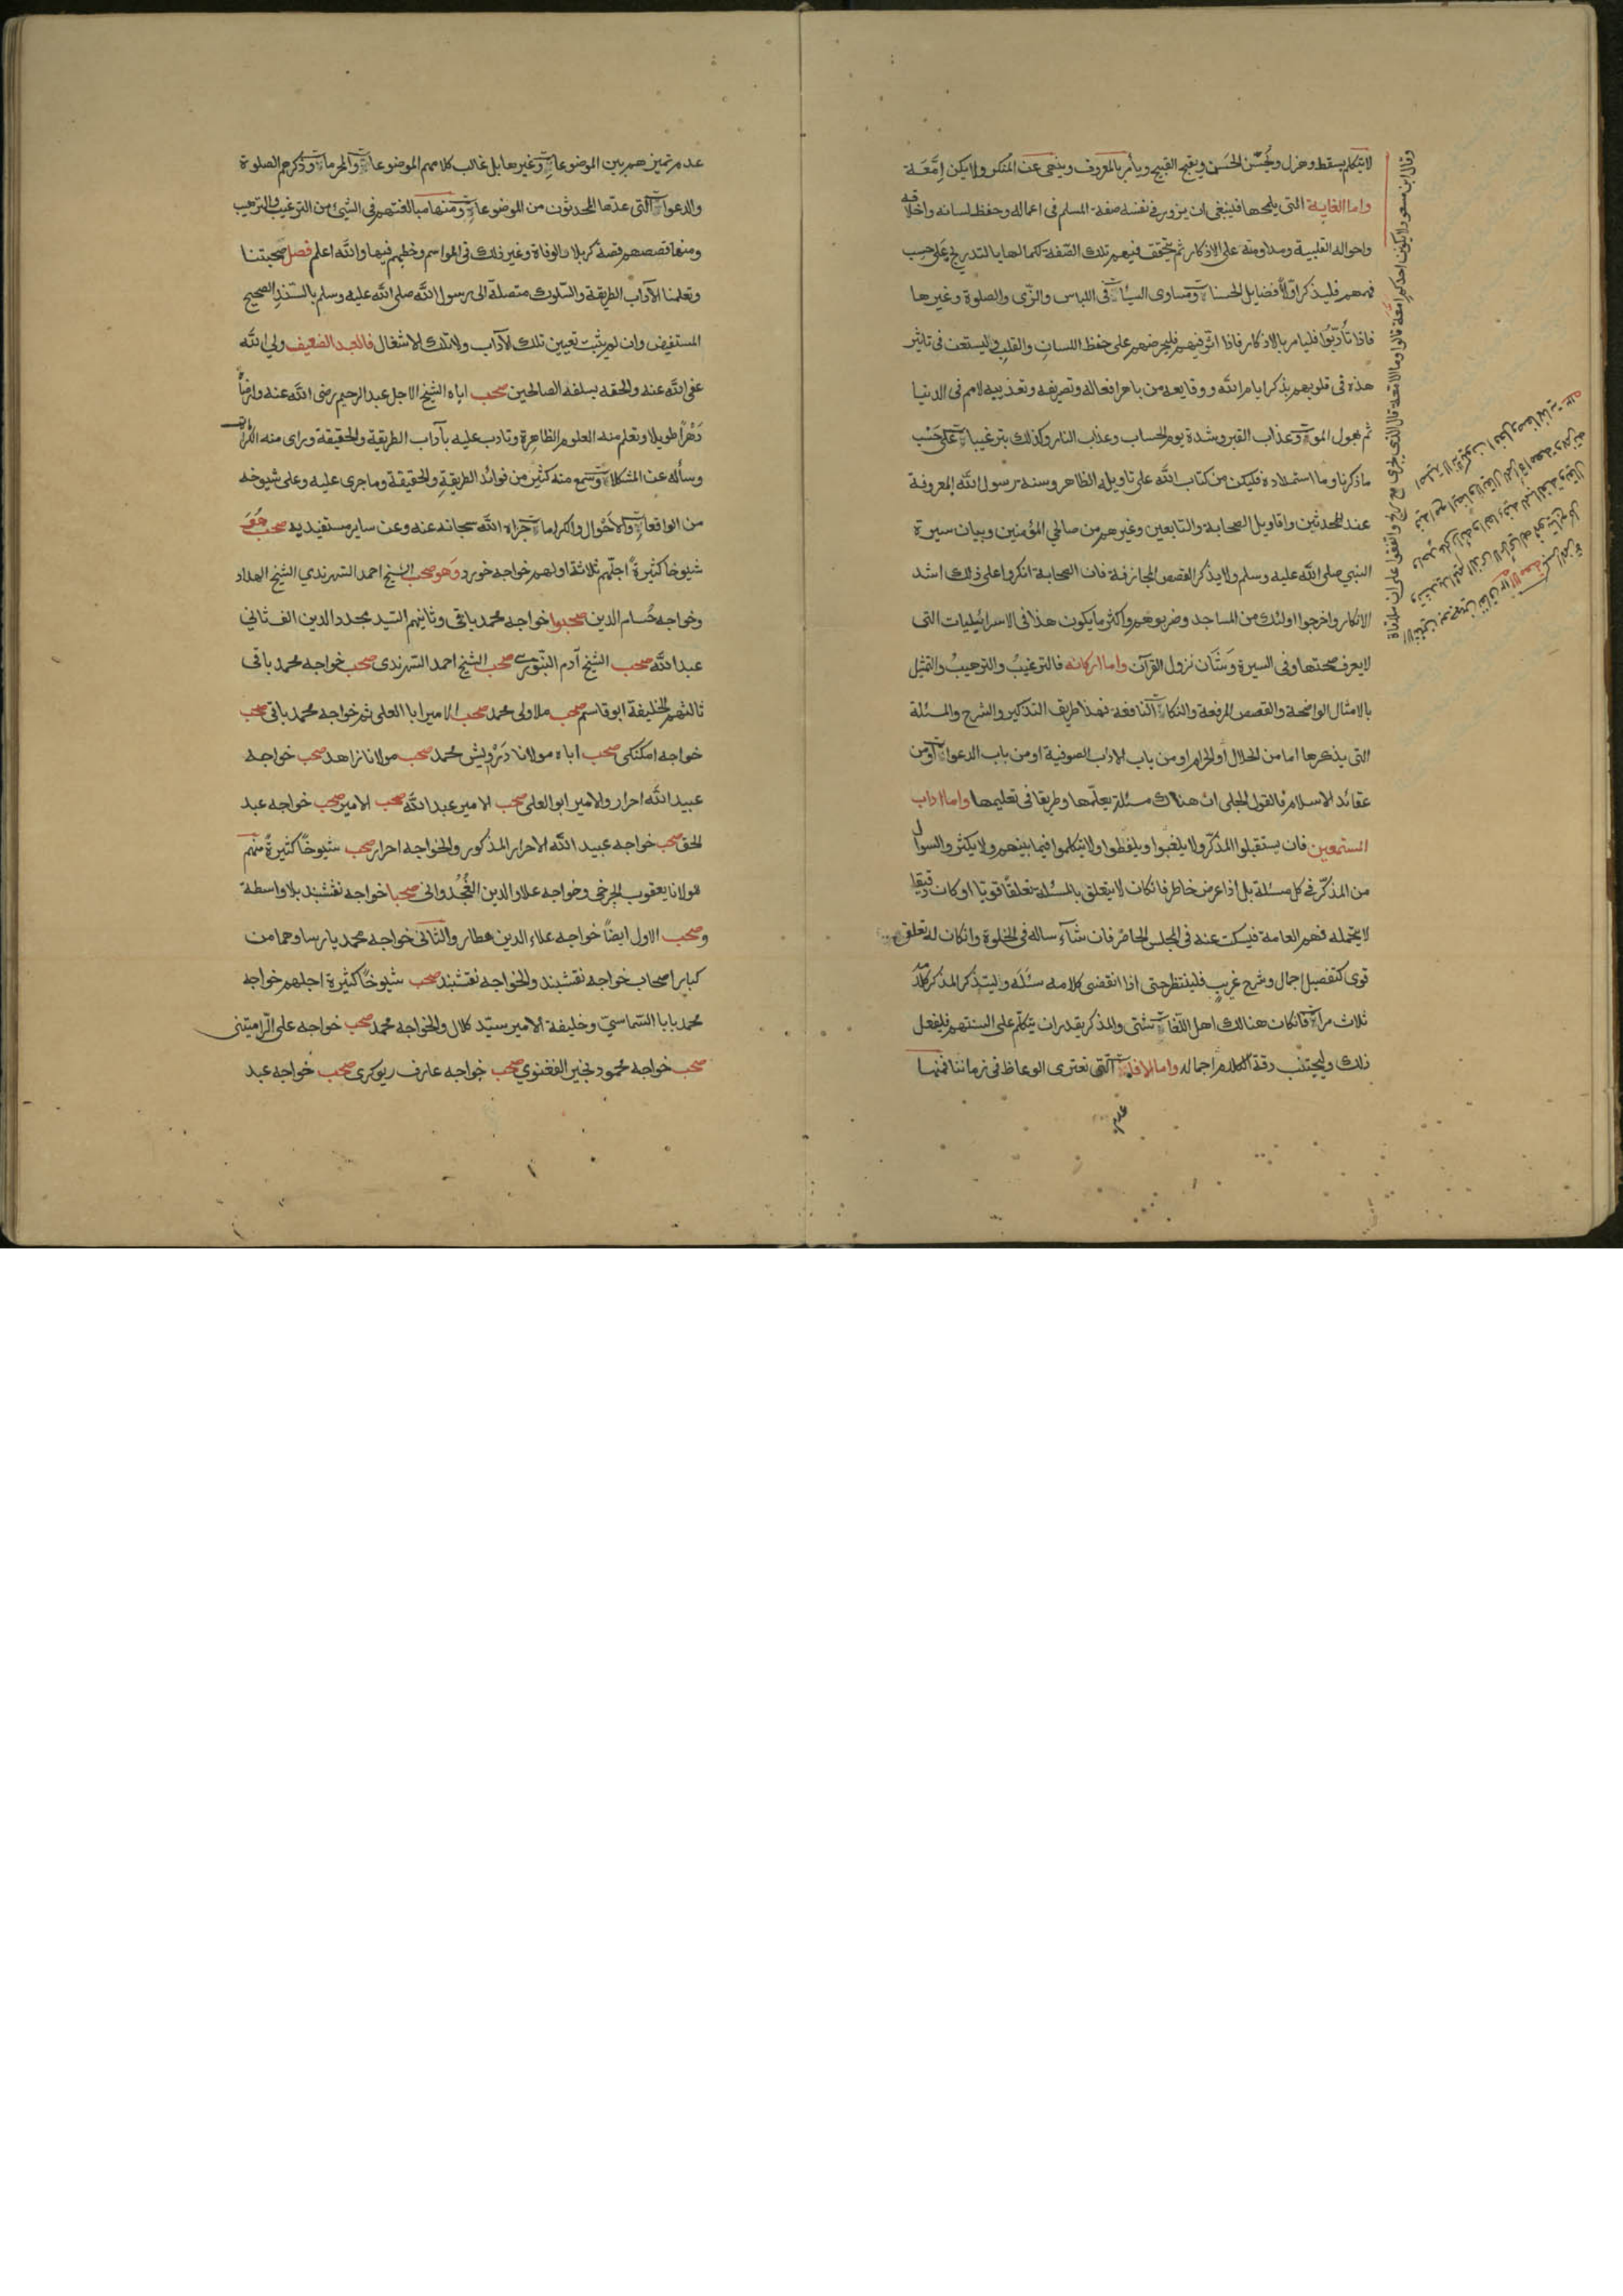 لا يتكلم بسقط وهزل ويحسّن الحَسَن ويقبح القبيح ويأمر بالمعروف وينهى عن المنكر ولا يكن اِمَّعَة
واما الغاية التى يلمحها فينبغى ان يزور فى نفسه صفة المسلم فى اعماله وحفظ لسانه واخلاقه
واحواله القلبية ومداومته على الاذكار ثم يتحقق فيهم تلك الصّفة كمالها بالتدريج على حسب
فهمهم فليذكر اوّلا فضايل الحسنات ومساوى السيّات فى اللباس والزّى والصلوة وغيرها
فاذا تأدّبوا فليامر بالاذكار فاذا اثّر فيهم فليحرضهم على حفظ اللسان والقلب وليستعن فى تاثير
هذه فى قلوبهم بذكر ايام الله ووقايعه من باهر افعاله وتصريفه وتعذيبه لامم فى الدنيا
ثم بهول الموت وعذاب القبر وشدة يوم الحساب وعذاب النار وكذلك بترغيبات على حَسْب
ما ذكرنا وما استمداده فليكن من كتاب الله على تاويله الظاهر وسنة رسول الله المعروفة
عند المحدثين واقاويل الصحابة والتابعين وغيرهم من صالحي المؤمنين وبيان سيرة
النبي صلى الله عليه وسلم ولا يذكر القصص المجازفة فان الصحابة انكروا على ذلك اشد
الانكار واخرجوا اولئك من المساجد وضربوهم واكثر ما يكون هذا فى الاسرائيليات التى
لا يعرف صحتها وفى السيرة وشان نزول القرآن واما اركانه فالترغيبُ والترهيبُ والتمثيل
بالامثال الواضحة والقصص المرفعة والنكات النافعة فهذا طريق التذكير والشرح والمسئلة
التى يذكرها اما من الحلال او الحرام او من باب الادب الصوفية او من باب الدعوات او من
عقائد الاسلام فالقول الجلى انّ هناك مسئلة يعلّمها وطريقا فى تعليمها واما اداب
المستمعين فان يستقبلوا المذكّر ولا يلغبوا ويلغطوا ولا يتكلموا فيما بينهم ولا يكثروا السوال
من المذكّر فى كل مسئلة بل اذا عرض خاطر فان كان لا يتعلق بالمسئلة تعلقا قويّا او كان دقيقا
لا يحتمله فهم العامة فيسكت عنه فى المجلس الحاضر فان شآء ساله فى الخلوة وان كان له تعلق
قوى كتفصيل اجمال وشرح غريب فلينتظر حتى اذا انقضى كلامه سئله وليتذكر المذكر كلامه
ثلاث مرات فان كان هنالك اهل اللغات شتى والمذكر يقدر ان يتكلّم على السنتهم فليفعل
ذلك وليجتنب دقة الكلام واجماله واما الافات التى تعترى الوعاظ فى زماننا فمنها
عدم
وقال ابن مسعود لا يكونن احدكم امعة قالوا وما الامعة قال الذى يجرى مع كل ريح
عدم تميزهم بين الموضوعات وغيرها بل غالب كلامهم الموضوعات والمحرمات وذكرهم الصلوة
والدعوات التى عدّها المحدثون من الموضوعات ومنها مبالغتهم فى الشيئ من الترغيب والترهيب
ومنها قصصهم قصة كربلا والوفاة وغير ذلك فى المواسم وخطبهم فيها والله اعلم فصل صحبتنا
وتعلمنا الآداب الطريقة والسّلوك متصلة الى رسول الله صلى الله عليه وسلم بالسّند الصحيح
المستفيض وان لم يثبت تعيين تلك الآداب ولا تلك الاشغال فالعبد الضعيف ولى الله
عفى الله عنه والحقه بسلفه الصالحين صحب اباه الشيخ الاجل عبد الرحيم رضى الله عنه وارضاه
دَهْرًا طويلا وتعلم منه العلوم الظاهرة وتادب عليه بآداب الطريقة والحقيقة وراى منه الكرامات
وسأله عن المشكلات وسمع منه كثير من فوائد الطريقة والحقيقة وما جرى عليه وعلى شيوخه
من الواقعات والاحوال والكرامات جزاه الله سبحانه عنه وعن ساير مستفيديه صحب هو
شيوخا كثيرة اجلّهم ثلاثة اولهم خواجه خورد وهو صحب الشيخ احمد السّرهندي الشيخ الهداد
وخواجه حُسام الدين صحبوا خواجه محمد باقى وثانيهم السّيد مجدد الدين الف ثاني
عبد الله صحب الشيخ آدم البنّورى صحب الشيخ احمد السّرهندى صحب خواجه محمد باقى
ثالثهم الخليفة ابو قاسم صحب ملا ولى محمد صحب الامير ابا العلى ثم خواجه محمد باقى صحب
خواجه امكنكى صحب اباه مولانا دَرْويش محمد صحب مولانا زاهد صحب خواجه
عبيد الله احرار والامير ابو العلى صحب الامير عبد الله صحب الامير صحب خواجه عبد
الحق صحب خواجه عبيد الله الاحرار المذكور والخواجه احرار صحب شيوخًا كثيرةً منهم
مولانا يعقوب الچرخى وخواجه علاو الدين الغُجُدوانى صحبا خواجه نقشبند بلا واسطة
وصحب الاول ايضًا خواجه علاء الدين عطار والثانى خواجه محمد پارسا وهما من
كبار اصحاب خواجه نقشبند والخواجه نقشبند صحب شيوخًا كثيرة اجلهم خواجه
محمد بابا السّماسىّ وخليفة الامير سيّد كلال والخواجه محمد صحب خواجه على الرّاميتنى
صحب خواجه محمود نجير الفغنوى صحب خواجه عارف ريوكرى صحب خواجه عبد